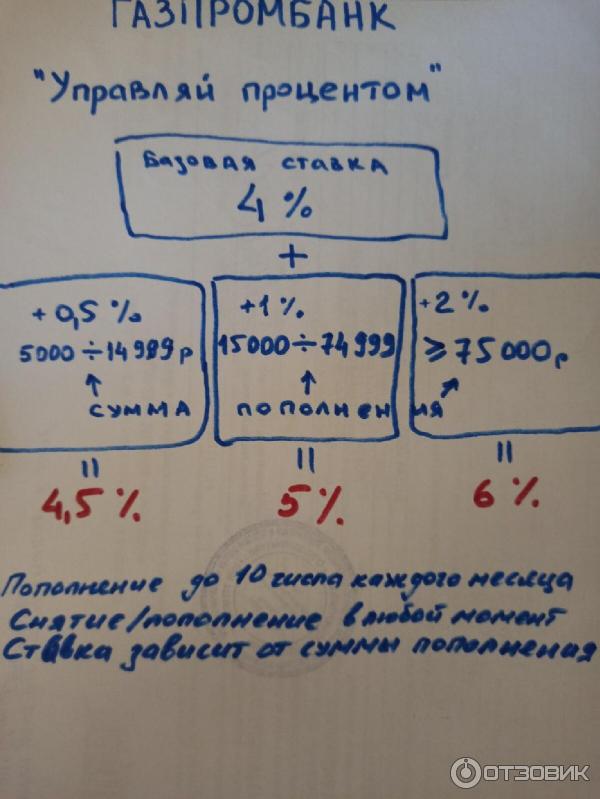 ГАЗПРОМБАНК
"Управляй процентом"
Базовая ставка
4%
+
+0,5% +1% +2%
5000÷14989р 15000÷74999 ≥75000р
сумма пополнения
= = =
4,5% 5% 6%
Пополнение до 10 числа каждого месяца
Снятие/пополнение в любой момент
Ставка зависит от суммы пополнения
ОТЗОВИК